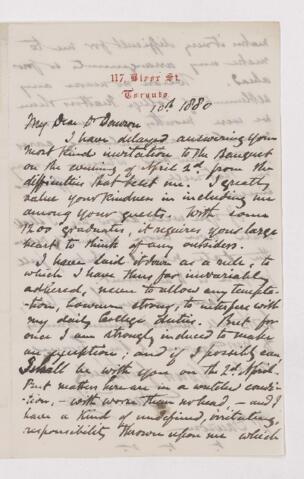 117, Bloor St.
Toronto.
10th 1880
My Dear Dr Dawson
I have delayed answering your
most kind invitation to the Banquet
on the evening of April 2d from the
difficulties that beset me. I greatly
value your kindness in including me
among your guests. With some
1200 graduates, it requires your large
heart to think of any outsiders.
I have laid it down as a rule, to
which I have thus far invariably
adhered, never to allow any tempta-
-tion, however strong, to interfere with
my daily College duties. But for
once I am strongly induced to make
an exception; and if I possibly can,
I shall be with you on the 2d April.
But matters here are in a wretched condi-
-tion, - with worse than no head - and I
have a kind of undefined, irritating,
responsibility thrown upon me which